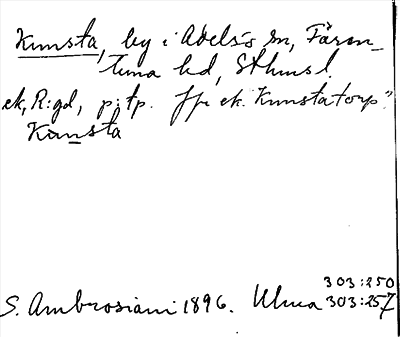 Kunsta, by i Adels's sn, Fären-
tuna hd, Sthmsl.
ek, R:gd, p:tp. ffr ek. Kunstatorp"
Kunsta
303:250
S. Ambrosiani 1896. Uhua 303:257